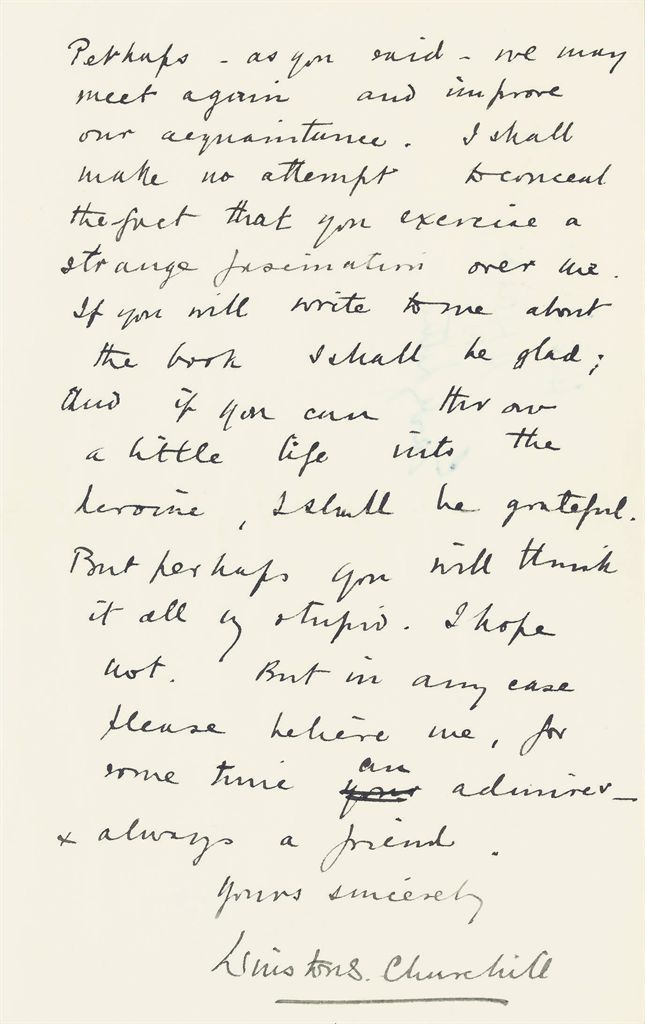 Perhaps - as you said - we may
meet again and improve
our acquaintance. I shall
make no attempt to conceal
the fact that you exercise a
strange fascination over me.
If you will write to me about
the book I shall be glad;
And if you can throw
a little life into the
heroine, I shall be grateful.
But perhaps you will think
it all stupid. I hope
not. But in any case
please believe me, for
some time your an admirer -
+ always a friend.
Yours sincerely
Winston S. Churchill